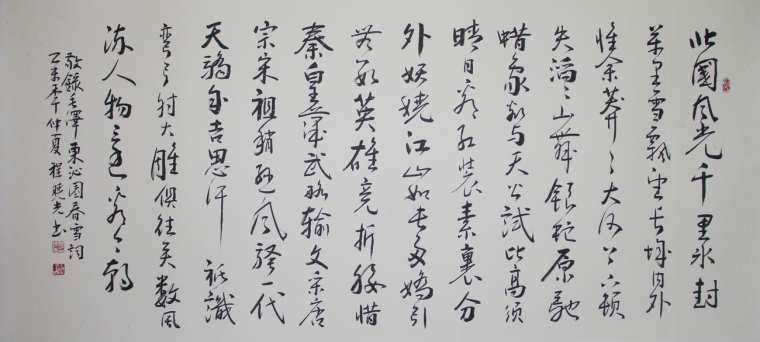 北國风光千里冰封
萬里雪飄望长城内外
惟余莽々大河上下頓
失滔々山舞銀蛇原馳
蜡象欲与天公試比高須
晴日看红裝素裹分
外妖嬈江山如此多嬌引
无數英雄竞折腰惜
秦皇漢武略输文采唐
宗宋祖稍逊风骚一代
天骄成吉思汗祇識
弯弓射大雕俱往矣數风
流人物还看今朝
敬錄毛澤東沁园春雪詞
乙未年仲夏程晓光书